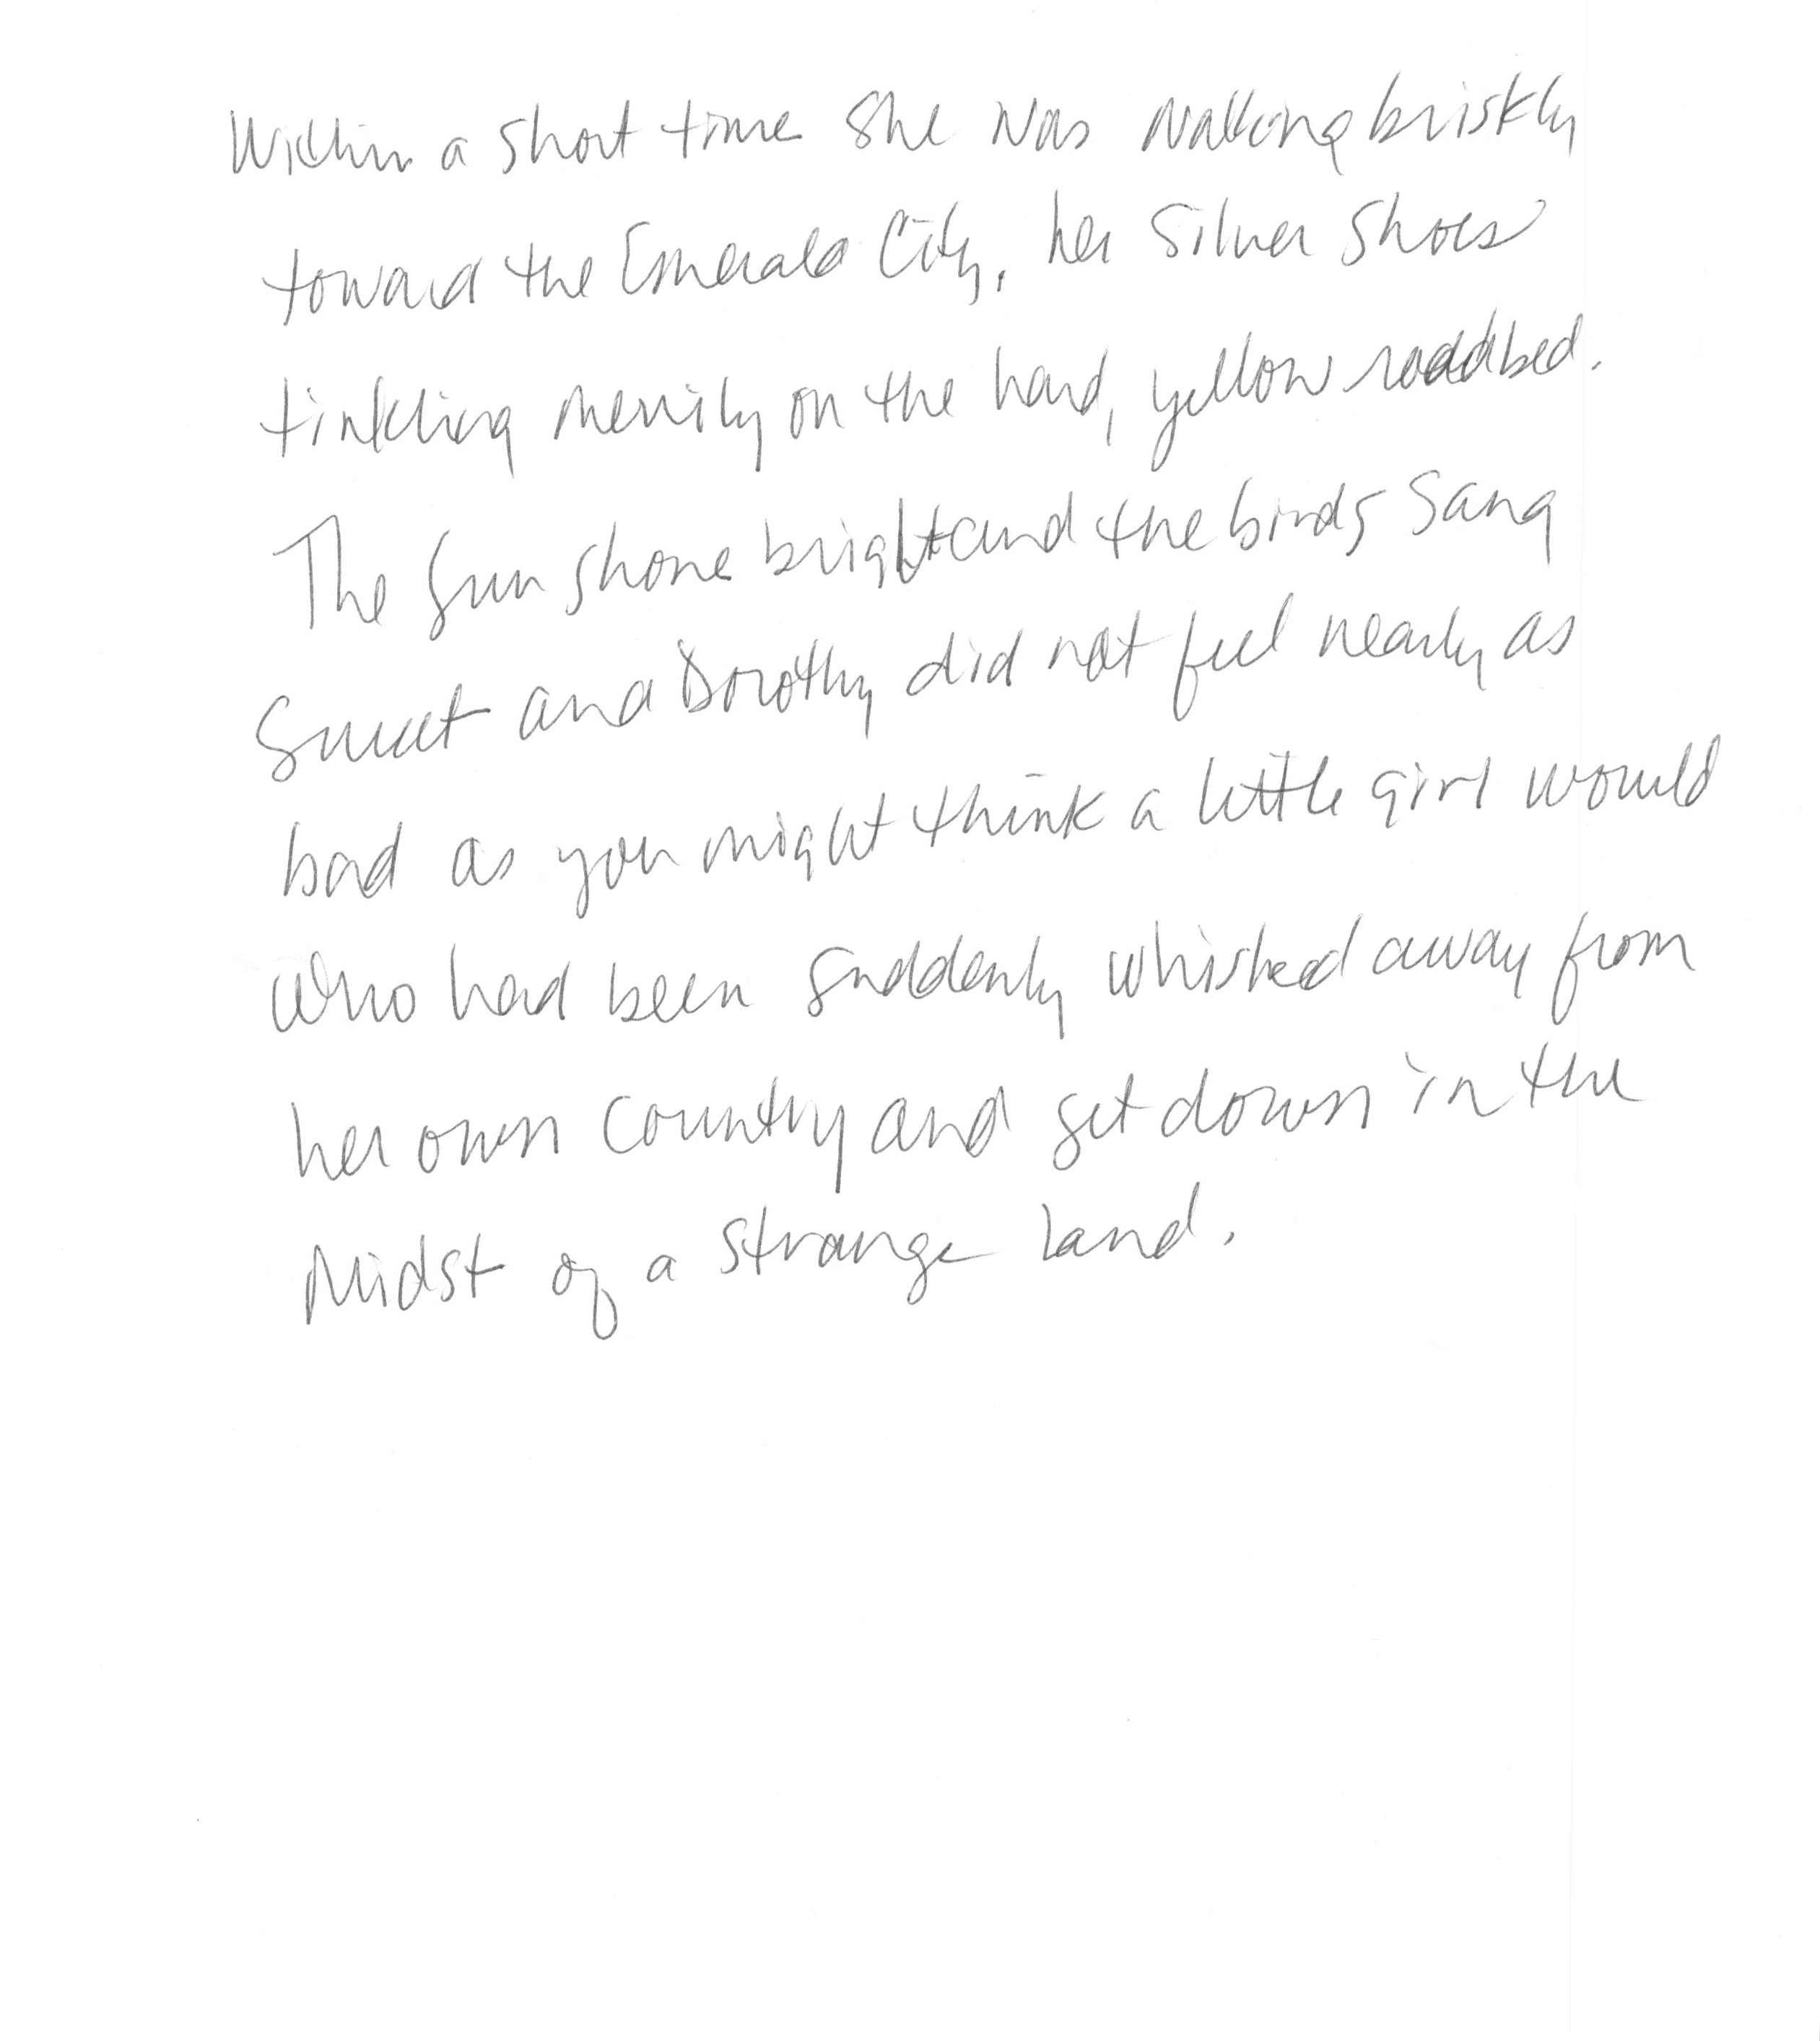 Within a short time she was walking briskly
toward the Emerald City, her Silver Shoes
tinkling merrily on the hard, yellow roadbed.
The sun shone bright and the birds sang
sweet and Dorothy did not feel nearly as
bad as you might think a little girl would
who had been suddenly whisked away from
her own country and set down in the
midst of a strange land.